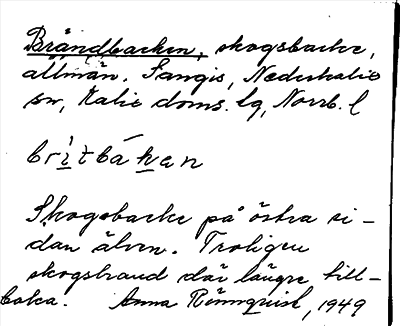 Brändbacken, skogsbacke,
allmän. Tangis, Nederkalix
sn, Kalix doms. lg, Norrb. l
britbáken
Skogsbacke på östra si-
dan älven. Troligen
skogsbrand där längre till-
baka. Anna Rönnquist, 1949